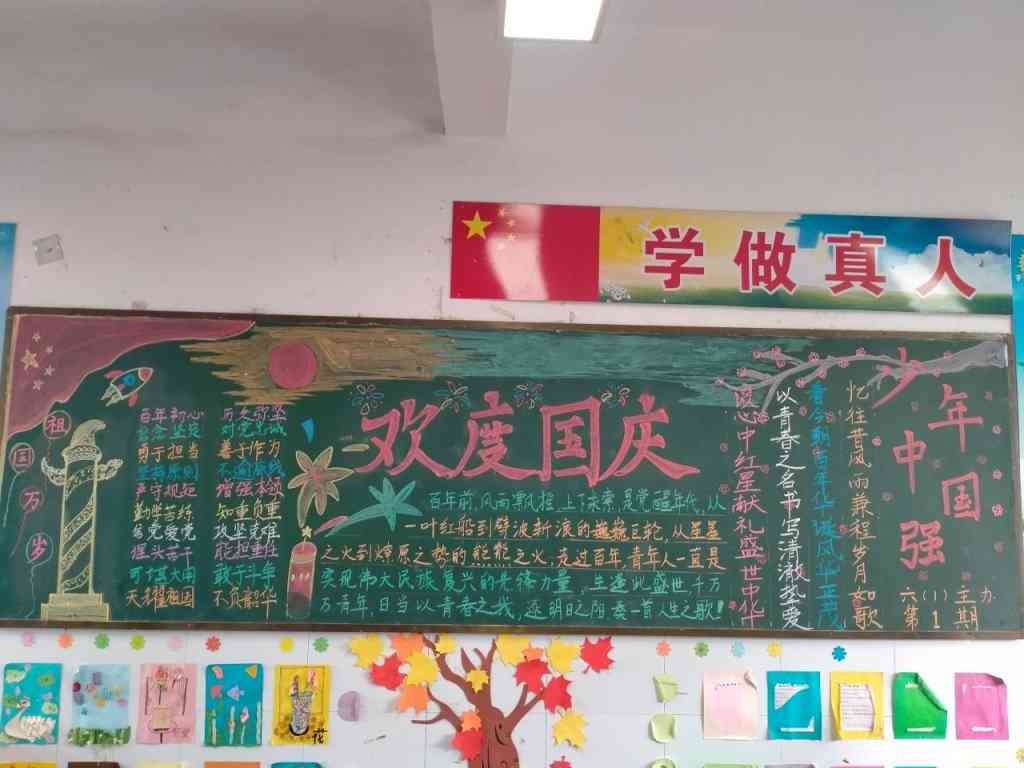 学做真人
祖国万岁
百年初心
历久弥坚
对党忠诚
勇于担当
善于作为
严守规矩
增强本领
勤学苦练
知重负重
攻坚克难
能担重任
可堪大用
敢于斗争
天耀祖国
不负韶华
欢度国庆
百年前，风雨飘摇，上下求索，是党 年代，从
一叶红船到劈波斩浪的巍巍巨轮，从星星
之火到燎原之势的熊熊之火，走过百年，青年人一直是
实现伟大民族复兴的先锋力量，生逢此盛世千万
万青年，日当以青春之我，逐明日之阳奏一首人生之歌！
少年中国强
忆往昔风雨兼程岁月如歌
看今朝百年华诞风华正茂
以青春之名书写清澈热爱
心中红星献礼盛世中华
六（1）主办
第1期